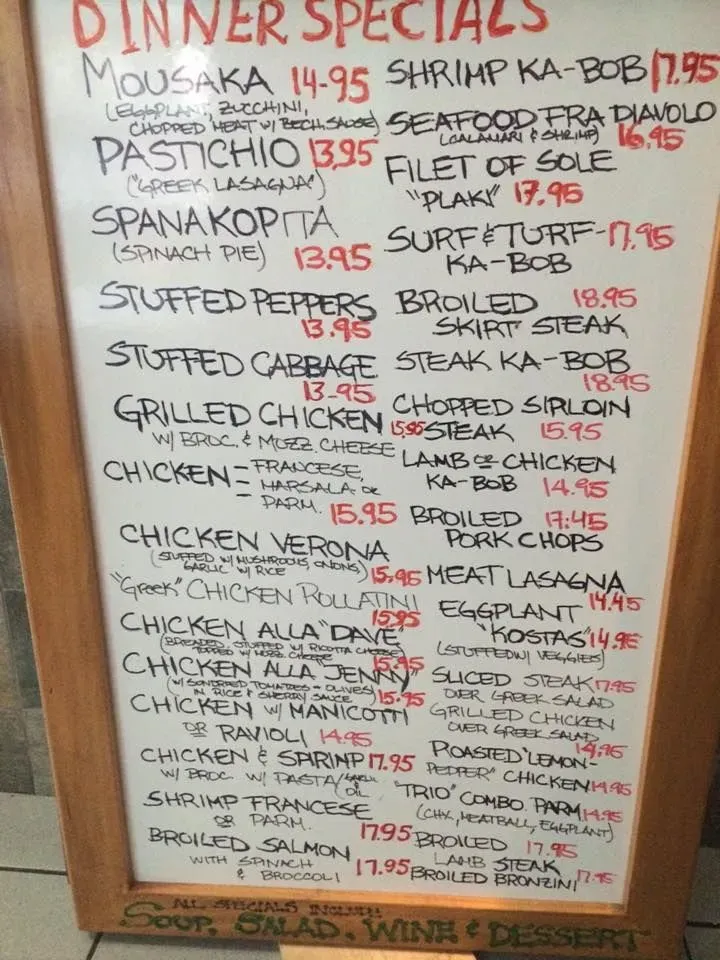 DINNER SPECIALS
MOUSAKA 14-95
(EGGPLANT, ZUCCHINI,
CHOPPED MEAT W/ BECH. SAUSE)
PASTICHIO 13.95
("GREEK LASAGNA")
SPANAKOPITA
(SPINACH PIE) 13.95
STUFFED PEPPERS
13.95
STUFFED CABBAGE
13-95
GRILLED CHICKEN 15.95
W/ BROC. & MOZZ. CHEESE
CHICKEN - FRANCESE,
- MARSALA OR
- PARM. 15.95
CHICKEN VERONA
(STUFFED W/ MUSHROOMS, ONIONS,
GARLIC W/ RICE) 15.95
"Greek" CHICKEN ROLLATINI
15.95
CHICKEN ALLA "DAVE"
(BREADED, STUFFED W/ RICOTTA CHEESE
TOPPED W/ MOZZ. CHEESE) 15.95
CHICKEN ALLA JENNY"
(W/ SUNDRIED TOMATOES - OLIVES)
IN RICE & SHERRY SAUCE) 15.95
CHICKEN W/ MANICOTTI
OR RAVIOLI 14.95
CHICKEN & SPIRIMP 17.95
W/ BROC. W/ PASTA/GARLIC
OIL
SHRIMP FRANCESE
OR PARM. 17.95
BROILED SALMON
WITH SPINACH
& BROCCOLI 17.95
SHRIMP KA-BOB 17.95
SEAFOOD FRA DIAVOLO
(CALAMARI & SHRIMP) 16.95
FILET OF SOLE
"PLAKI" 17.95
SURF & TURF - 17.95
KA-BOB
BROILED 18.95
SKIRT STEAK
STEAK KA-BOB
18.95
CHOPPED SIRLOIN
STEAK 15.95
LAMB OR CHICKEN
KA-BOB 14.95
BROILED 17.45
PORK CHOPS
MEAT LASAGNA
14.45
EGGPLANT
"KOSTAS" 14.95
(STUFFED W/ VEGGIES)
SLICED STEAK 17.95
OVER GREEK SALAD
GRILLED CHICKEN
OVER GREEK SALAD
14.95
ROASTED "LEMON-
PEPPER" CHICKEN 14.95
"TRIO" COMBO PARM 14.95
(CHX, MEATBALL, EGGPLANT)
BROILED 17.95
LAMB STEAK
BROILED BRONZINI 17.95
ALL SPECIALS INCLUDE
SOUP, SALAD, WINE & DESSERT